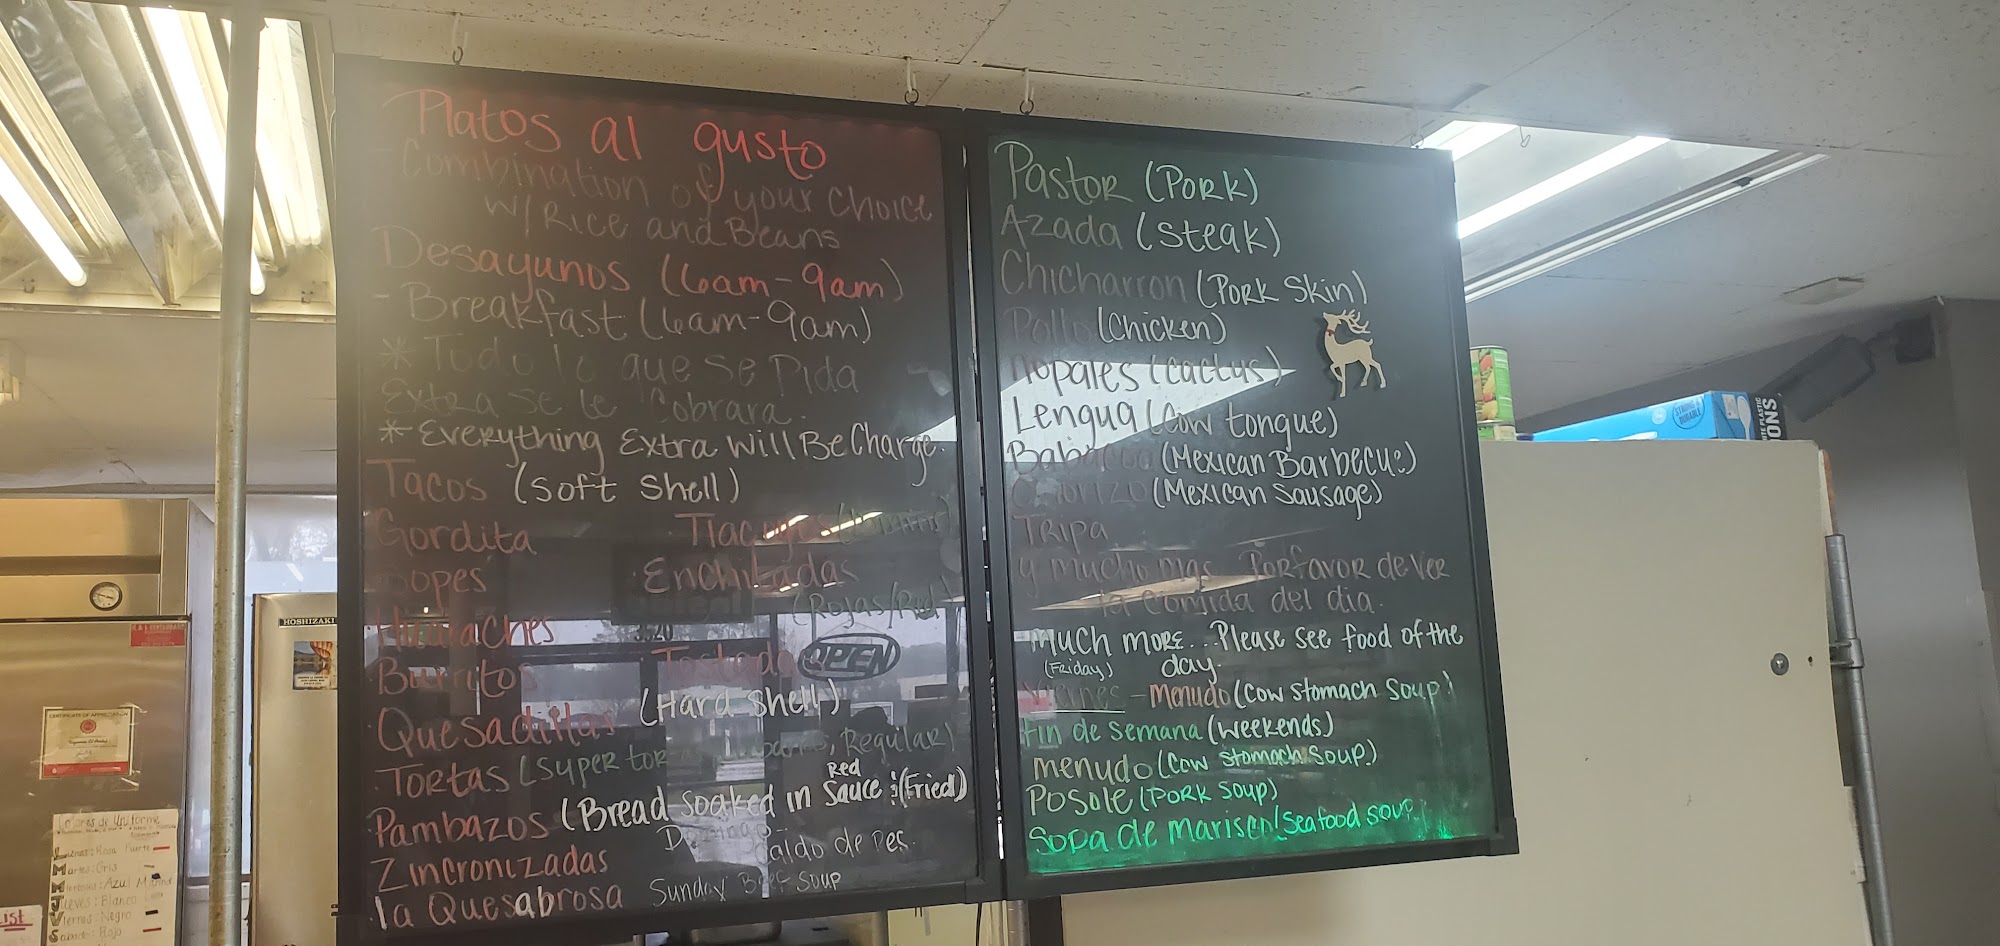 Platos al gusto
-Combination of your choice
w/Rice and Beans
Desayunos (6am-9am)
-Breakfast (6am-9am)
* Todo lo que se pida
Extra se le Cobrara
*Everything Extra Will Be Charge.
Tacos (Soft Shell)
Gordita
Sopes
Huaraches
Burritos
Quesadillas
Enchiladas
(Rojas/Red)
Tostadas
(Hard Shell)
Tortas (Super tortas, Regular)
Pambazos (Bread soaked in Red Sauce (Fried)
Zincronizadas
la Quesabrosa
Domingo
Caldo de Res.
Sunday Beef Soup
OPEN
Pastor (Pork)
Azada (Steak)
Chicharron (Pork Skin)
Pollo (Chicken)
Nopales (Cactus)
Lengua (Cow tongue)
Babacoa (Mexican Barbecue)
Chorizo (Mexican Sausage)
Tripa
y mucho mas Porfavor de ver
la comida del dia.
much more...Please see food of the
day.
(Friday)
Viernes - Menudo (Cow Stomach Soup)
Fin de Semana (Weekends)
menudo (Cow Stomach Soup)
Posole (Pork Soup)
Sopa de Marisco (Seafood Soup)
HOSHIZAKI
CERTIFICATE OF APPRECIATION
Colores de Uniforme
Lunes: Rosa Fuerte
Martes: Gris
Miercoles: Azul Marino
Jueves: Blanco
Viernes: Negro
Sabado: Rojo
List